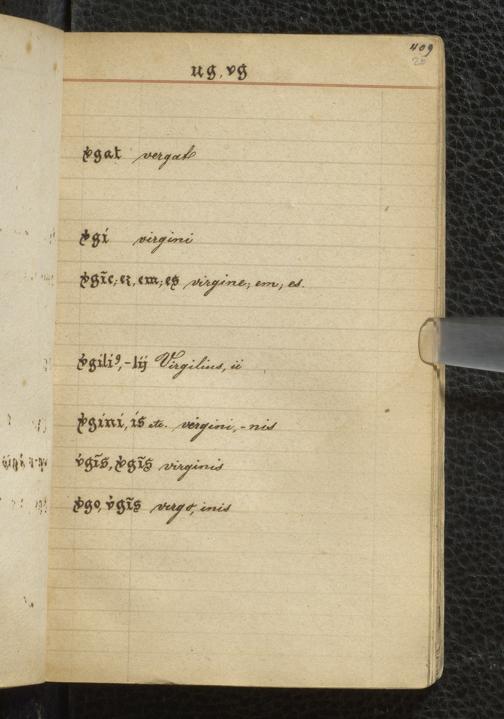 409
20
ug, vg
vgat vergat
vgi virgini
vgīe; eī, em; es virgine, em, es.
vgili⁹, -lij Virgilius, ii
vgini, is etc. virgini, -nis
vgīs, vgīs virginis
vgo, vgīs virgo, inis